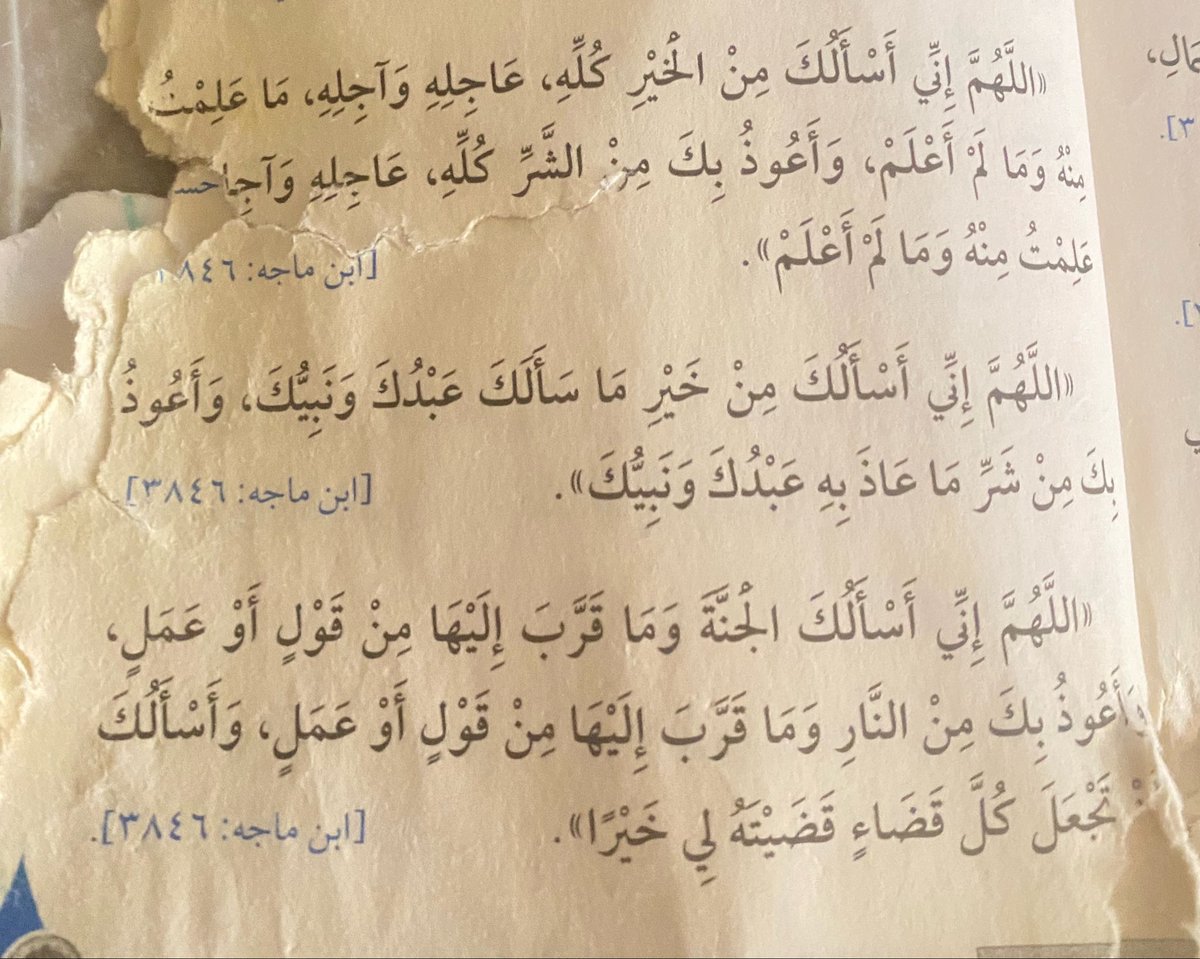 «اللَّهُمَّ إِنِّي أَسْأَلُكَ مِنْ الْخَيْرِ كُلِّهِ، عَاجِلِهِ وَآجِلِهِ، مَا عَلِمْتُ
مِنْهُ وَمَا لَمْ أَعْلَمْ، وَأَعُوذُ بِكَ مِنْ الشَّرِّ كُلِّهِ، عَاجِلِهِ
عَلِمْتُ مِنْهُ وَمَا لَمْ أَعْلَمْ».
[ابن ماجه: ٣٨٤٦
«اللَّهُمَّ إِنِّي أَسْأَلُكَ مِنْ خَيْرِ مَا سَأَلَكَ عَبْدُكَ وَنَبِيُّكَ، وَأَعُوذُ
بِكَ مِنْ شَرِّ مَا عَاذَ بِهِ عَبْدُكَ وَنَبِيُّكَ».
[ابن ماجه: ٣٨٤٦].
«اللَّهُمَّ إِنِّي أَسْأَلُكَ الْجَنَّةَ وَمَا قَرَّبَ إِلَيْهَا مِنْ قَوْلٍ أَوْ عَمَلٍ،
وَأَعُوذُ بِكَ مِنْ النَّارِ وَمَا قَرَّبَ إِلَيْهَا مِنْ قَوْلٍ أَوْ عَمَلٍ، وَأَسْأَلُكَ
تَجْعَلَ كُلَّ قَضَاءٍ قَضَيْتَهُ لِي خَيْرًا».
[ابن ماجه: ٣٨٤٦].